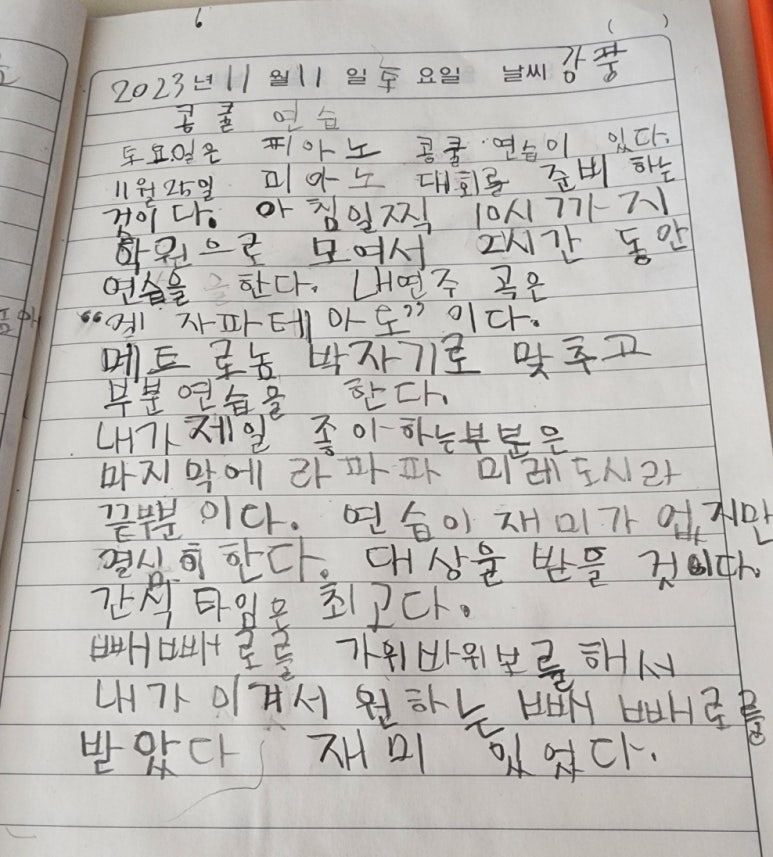 6
( )
2023년 11월 11일 토요일 날씨 강풍
콩쿨 연습
토요일은 피아노 콩쿨 연습이 있다.
11월 25일 피아노 대회를 준비하는
것이다. 아침일찍 10시 7가지
학원으로 모여서 2시간 동안
연습을 한다. 내연주 곡은
“젤 자파테아도” 이다.
메트로놈 박자기로 맞추고
부분연습을 한다.
내가 제일 좋아하는부분은
마지막에 라파파 미레도시라
끝부분이다. 연습이 재미가 없지만
열심히 한다. 대상을 받을 것이다.
간식 타임은 최고다.
빼빼로를 가위바위보를 해서
내가 이겨서 원하는 빼빼로를
받았다 재미 있었다.